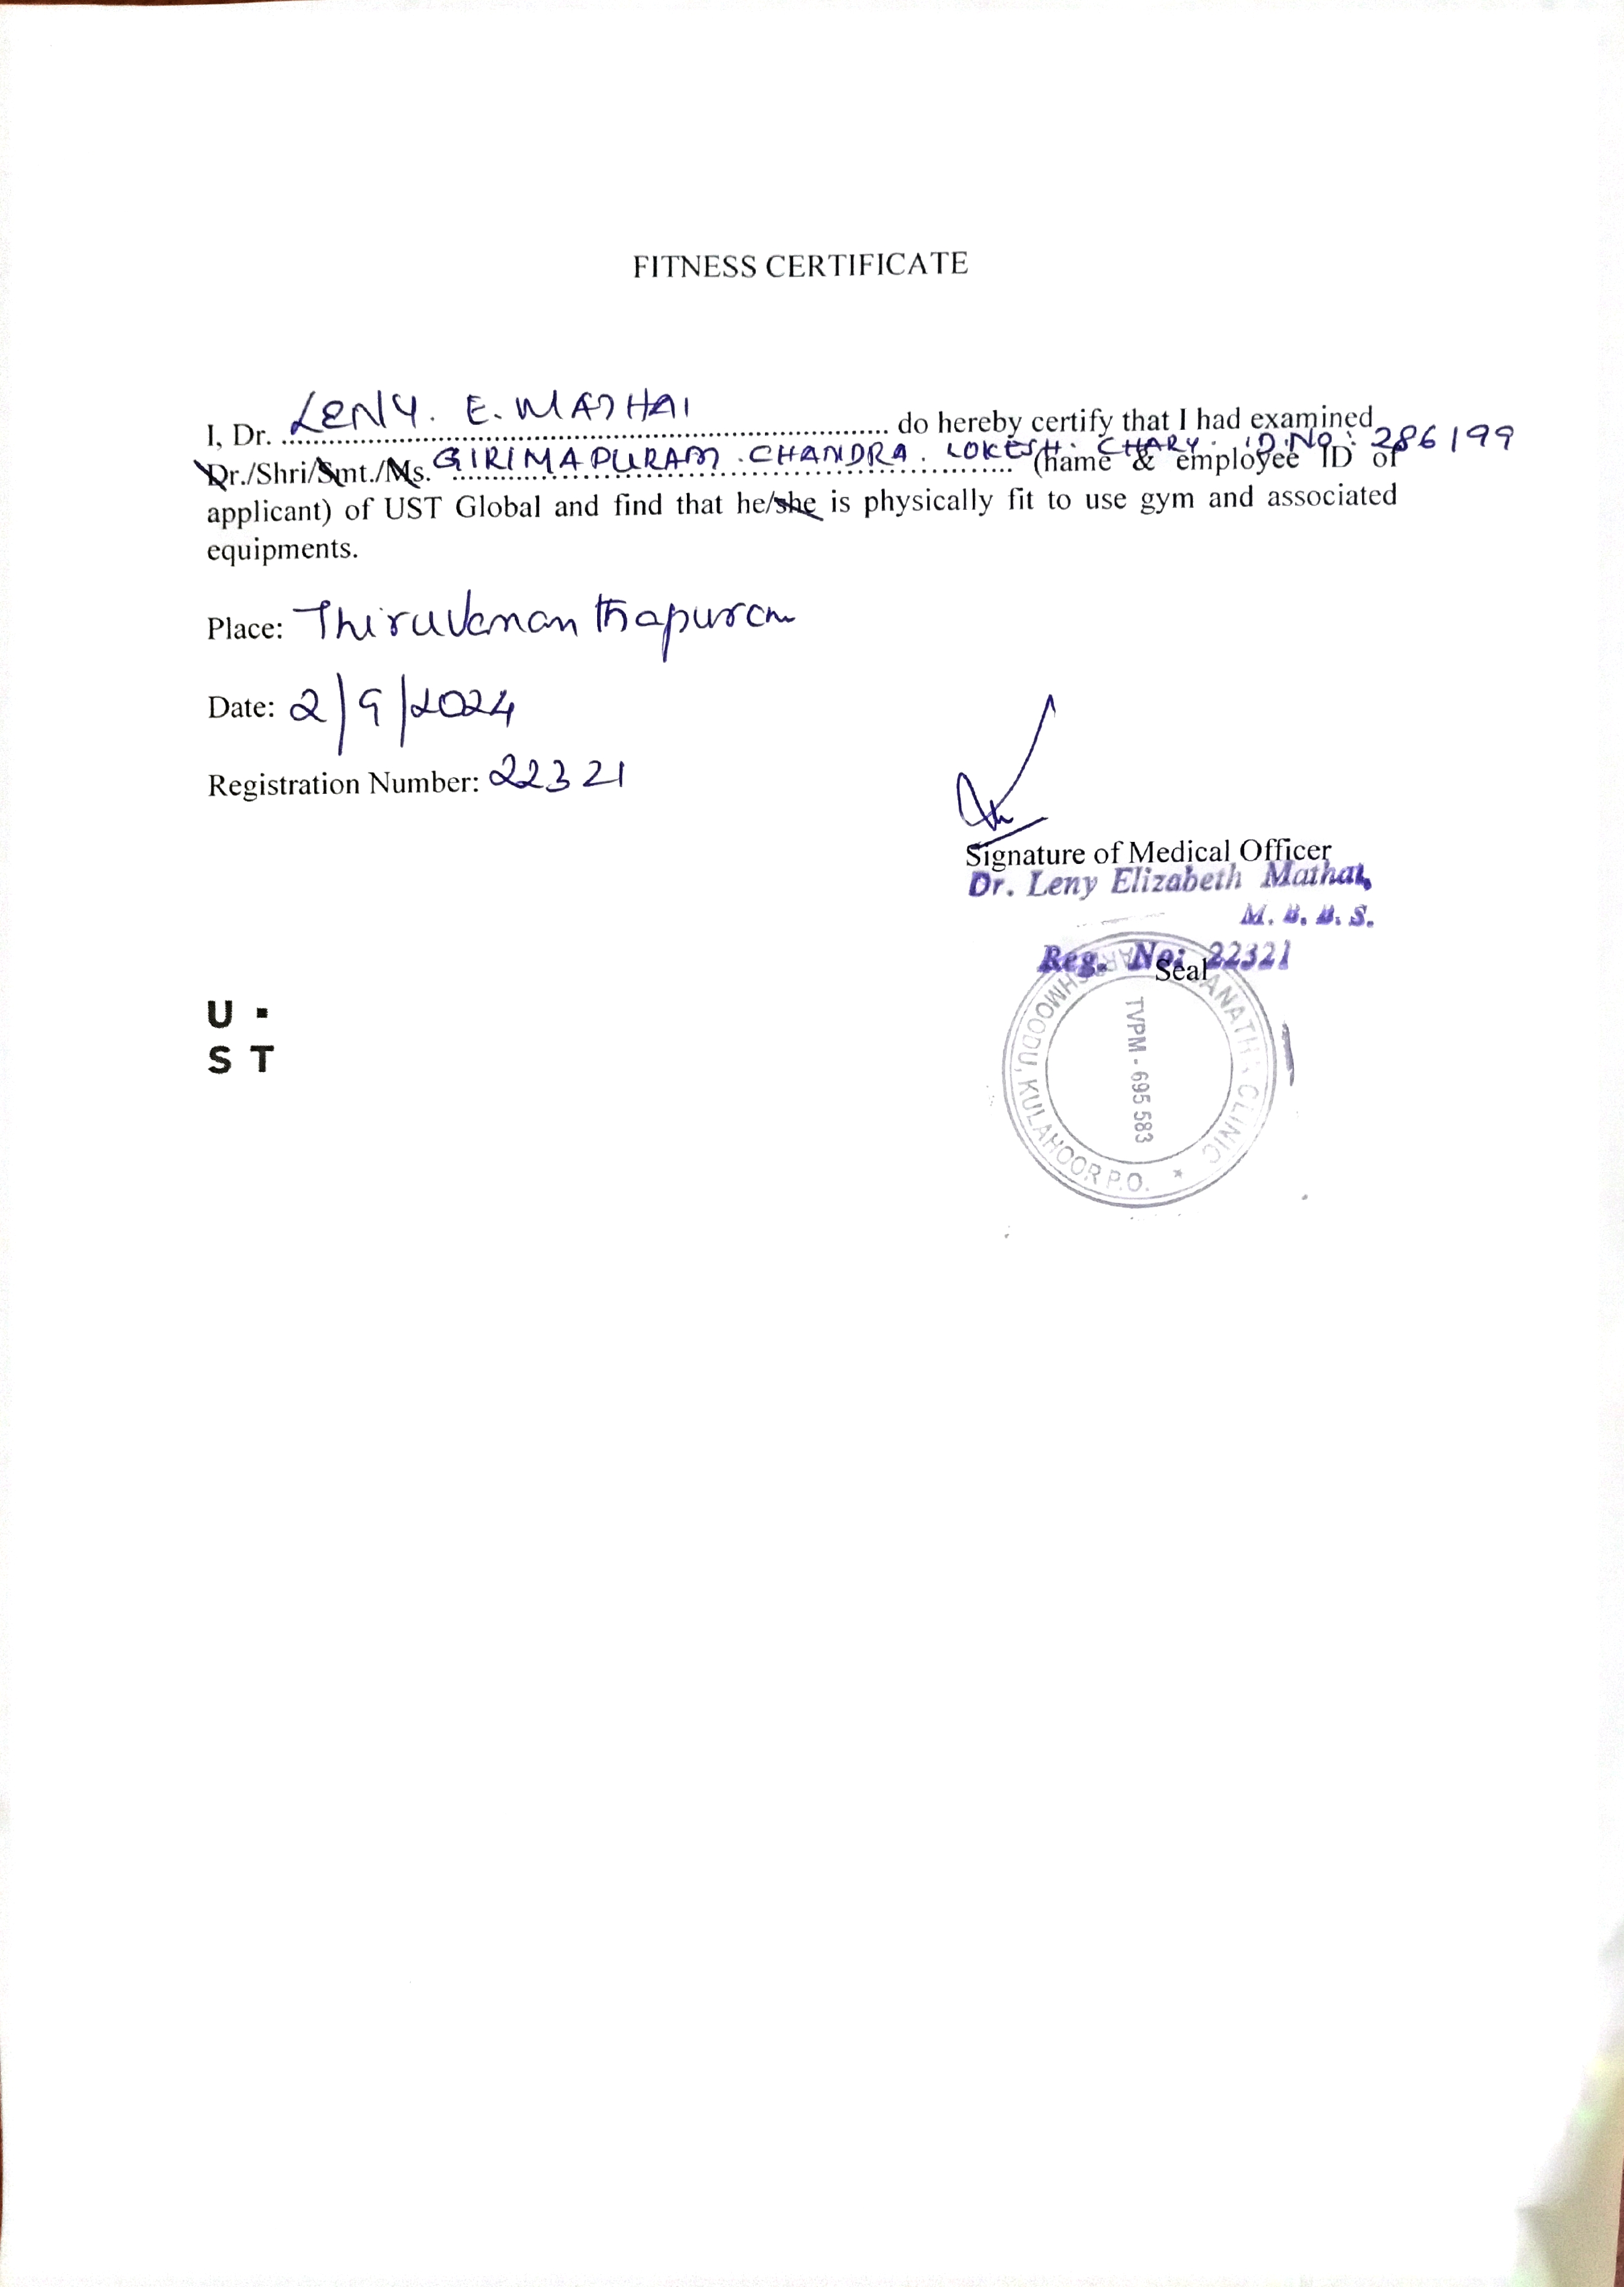 FITNESS CERTIFICATE
I, Dr. LENY. E. MATHAI do hereby certify that I had examined
Dr./Shri/Smt./Ms. GIRIMAPURAM. CHANDRA. LOKESH. CHARY. ID.No: 286199 (name & employee ID of
applicant) of UST Global and find that he/she is physically fit to use gym and associated
equipments.
Place: Thiruvananthapuram
Date: 2/9/2024
Registration Number: 22321
Signature of Medical Officer
Dr. Leny Elizabeth Mathai,
M. B. B. S.
Reg. No: 22321
Seal
CLINIC
KULAHOOR P.O. *
TVPM - 695 583
U ▪
S T